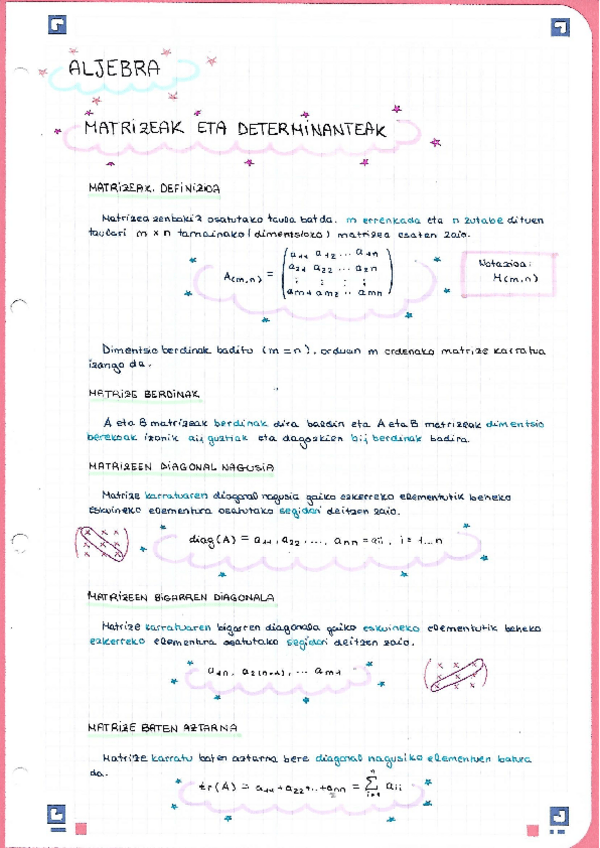 ALJEBRA
MATRIZEAK ETA DETERMINANTEAK
MATRIZEAK. DEFINIZIOA
Matrizea zenbakiz osatutako taula bat da. m errenkada eta n zutabe dituen
taulari m × n tamainako (dimentsioko) matrizea esaten zaio.
A(m,n) = ( a11 a12 ... a1n
a21 a22 ... a2n
⋮ ⋮ ⋮ ⋮
am1 am2 ... amn )
Notazioa:
M(m,n)
Dimentsio berdinak baditu (m = n), orduan m ordenako matrize karratua
izango da.
MATRIZE BERDINAK
A eta B matrizeak berdinak dira baldin eta A eta B matrizeak dimentsio
berekoak izanik aij guztiak eta dagozkien bij berdinak badira.
MATRIZEEN DIAGONAL NAGUSIA
Matrize karratuaren diagonal nagusia goiko ezkerreko elementutik beheko
eskuineko elementura osatutako segidari deitzen zaio.
diag(A) = a11, a22 ..., ann = aii, i = 1...n
MATRIZEEN BIGARREN DIAGONALA
Matrize karratuaren bigarren diagonala goiko eskuineko elementutik beheko
ezkerreko elementura osatutako segidari deitzen zaio.
a1n, a2(n-1), ... am1
MATRIZE BATEN AZTARNA
Matrize karratu baten aztarna bere diagonal nagusiko elementuen batura
da.
tr(A) = a11 + a22 + ... + ann = Σ aii